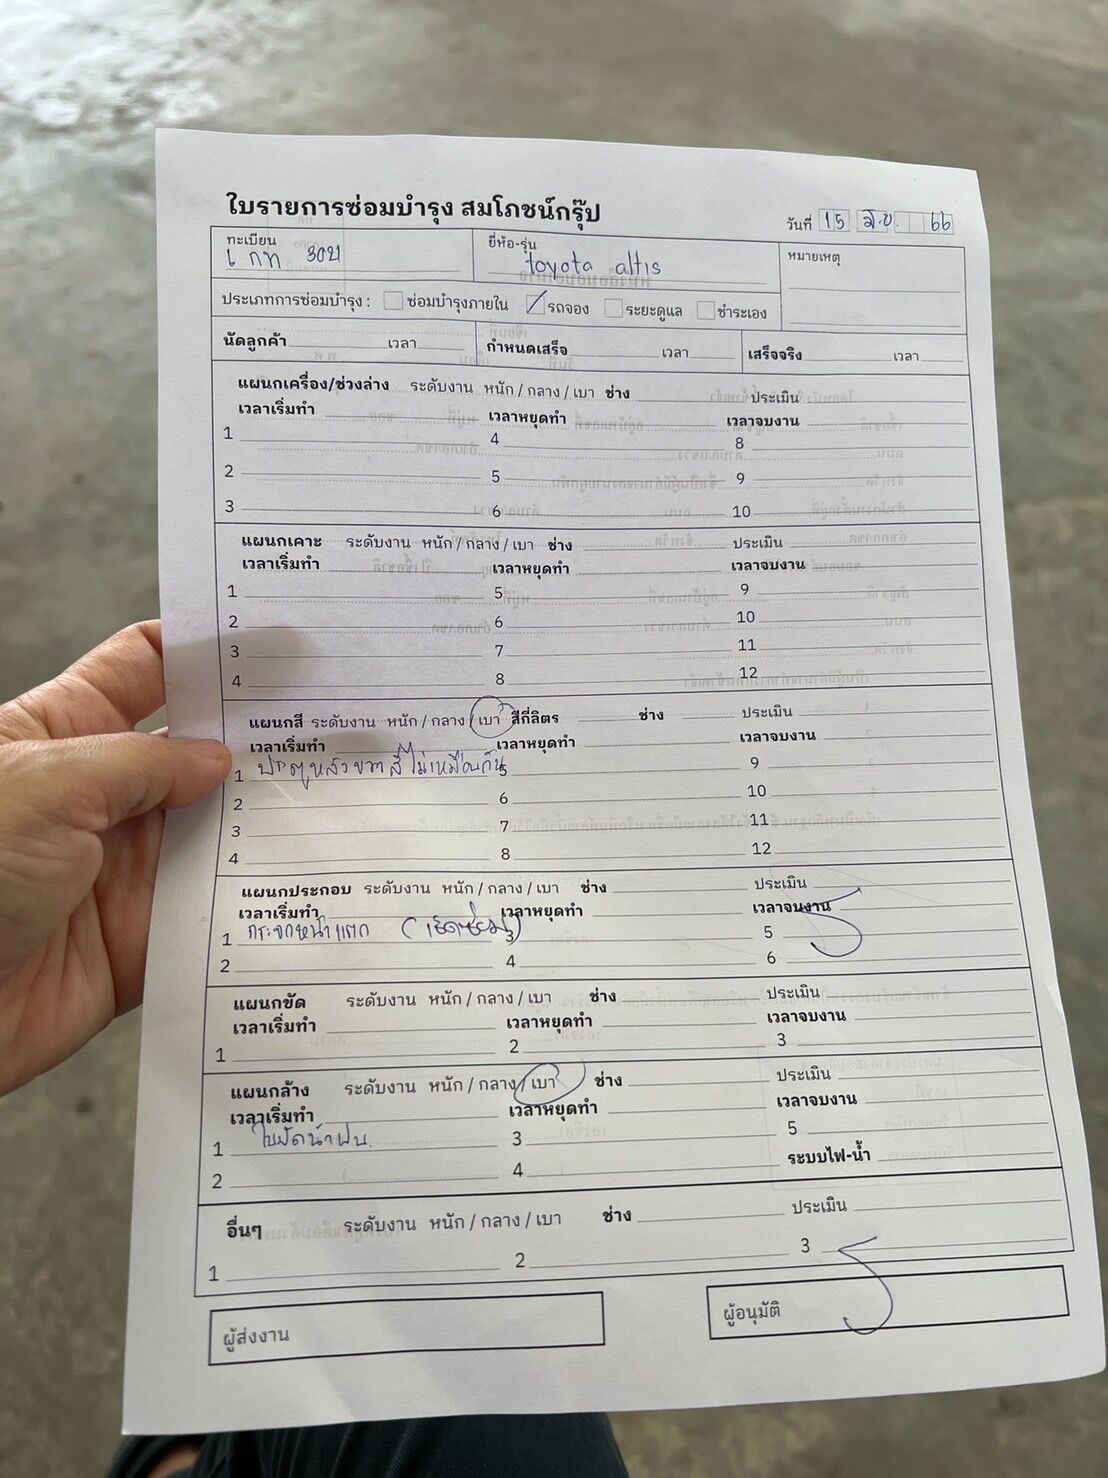 ใบรายการซ่อมบำรุง สมโภชน์กรุ๊ป
วันที่ 15 มิ.ย. 66
ทะเบียน ยี่ห้อ-รุ่น หมายเหตุ
toyota altis
ประเภทการซ่อมบำรุง : ซ่อมบำรุงภายใน รถจอง ระยะดูแล ชำระเอง
นัดลูกค้า เวลา กำหนดเสร็จ เวลา เสร็จจริง เวลา
แผนกเครื่อง/ช่วงล่าง ระดับงาน หนัก / กลาง / เบา ช่าง ประเมิน
เวลาเริ่มทำ เวลาหยุดทำ เวลาจบงาน
1 4 8
2 5 9
3 6 10
แผนกเคาะ ระดับงาน หนัก / กลาง / เบา ช่าง ประเมิน
เวลาเริ่มทำ เวลาหยุดทำ เวลาจบงาน
1 5 9
2 6 10
3 7 11
4 8 12
แผนกสี ระดับงาน หนัก / กลาง / เบา สีกี่ลิตร ช่าง ประเมิน
เวลาเริ่มทำ เวลาหยุดทำ เวลาจบงาน
1 ประตูหลังขวา สีไม่เหมือนกัน 5 9
2 6 10
3 7 11
4 8 12
แผนกประกอบ ระดับงาน หนัก / กลาง / เบา ช่าง ประเมิน
เวลาเริ่มทำ เวลาหยุดทำ เวลาจบงาน
1 กระจกหน้าแตก 3 5
2 4 6
แผนกขัด ระดับงาน หนัก / กลาง / เบา ช่าง ประเมิน
เวลาเริ่มทำ เวลาหยุดทำ เวลาจบงาน
1 2 3
แผนกล้าง ระดับงาน หนัก / กลาง / เบา ช่าง ประเมิน
เวลาเริ่มทำ เวลาหยุดทำ เวลาจบงาน
1 ใบปัดน้ำฝน 3 5
2 4 ระบบไฟ-น้ำ
อื่นๆ ระดับงาน หนัก / กลาง / เบา ช่าง ประเมิน
1 2 3
ผู้ส่งงาน ผู้อนุมัติ